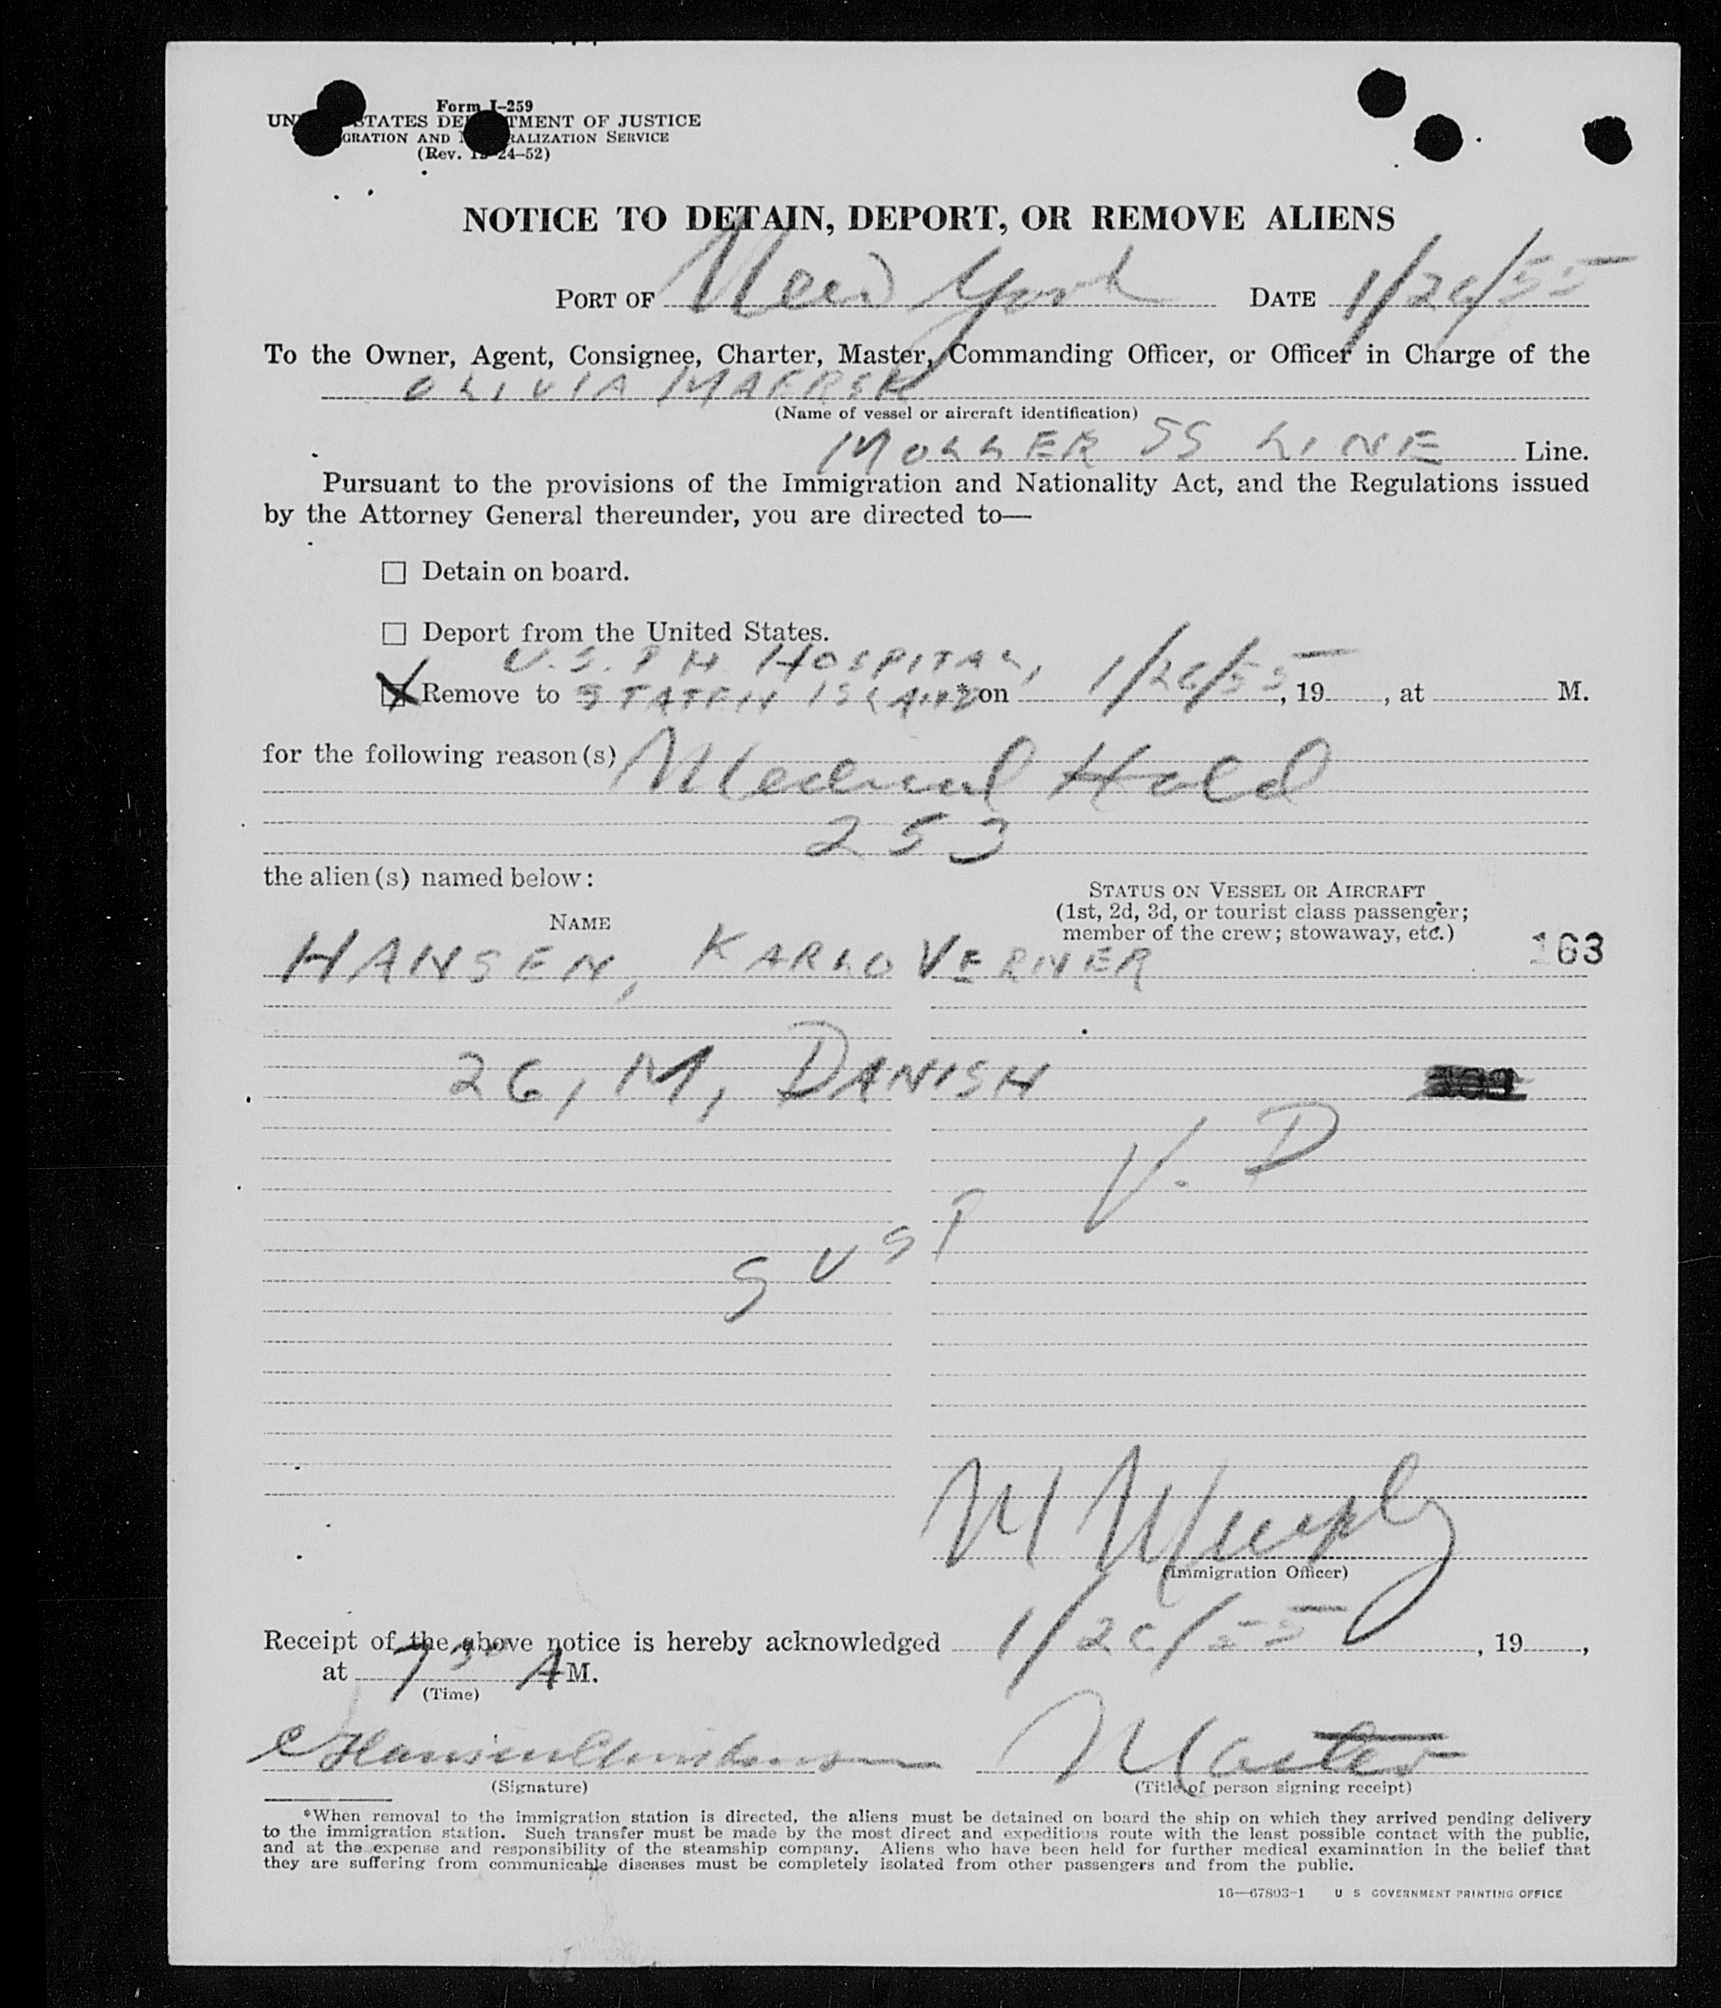 Form I–259
UN STATES DE TMENT OF JUSTICE
GRATION AND N RALIZATION SERVICE
(Rev. 12–24–52)
NOTICE TO DETAIN, DEPORT, OR REMOVE ALIENS
PORT OF New York DATE 1/26/55
To the Owner, Agent, Consignee, Charter, Master, Commanding Officer, or Officer in Charge of the
OLIVIA MAERSK
(Name of vessel or aircraft identification)
MOLLER SS LINE Line.
Pursuant to the provisions of the Immigration and Nationality Act, and the Regulations issued
by the Attorney General thereunder, you are directed to—
Detain on board.
Deport from the United States.
U.S. P H HOSPITAL,
Remove to STATEN ISLAND *on 1/26/55, 19 , at M.
for the following reason(s) Medical Hold
253
the alien(s) named below:
NAME
STATUS ON VESSEL OR AIRCRAFT
(1st, 2d, 3d, or tourist class passenger;
member of the crew; stowaway, etc.)
HANSEN, KARLO VERNER
163
26, M, DANISH
V. D
SUSP
M Murphy
(Immigration Officer)
Receipt of the above notice is hereby acknowledged 1/26/55, 19 ,
at 7 30 A M.
(Time)
Master
(Signature)
(Title of person signing receipt)
*When removal to the immigration station is directed, the aliens must be detained on board the ship on which they arrived pending delivery
to the immigration station. Such transfer must be made by the most direct and expeditious route with the least possible contact with the public,
and at the expense and responsibility of the steamship company. Aliens who have been held for further medical examination in the belief that
they are suffering from communicable diseases must be completely isolated from other passengers and from the public.
16—67803-1 U S GOVERNMENT PRINTING OFFICE